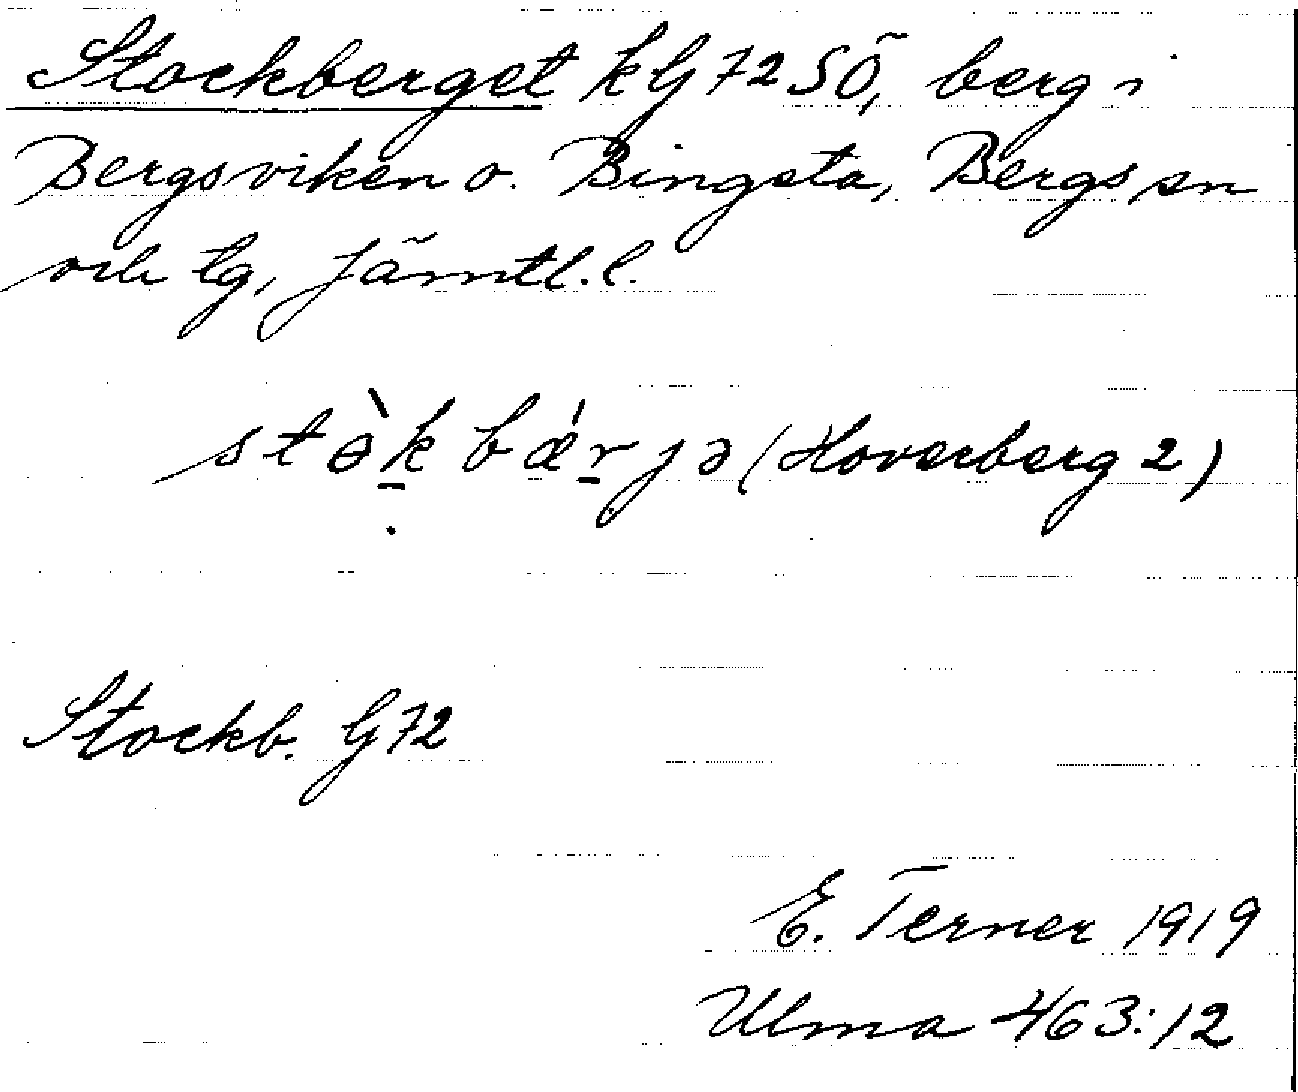 Stockberget kG72SÖ, berg i
Bergsviken o. Bingsta, Bergs sn
och tg, Jämtl. l.
stə̀kbǽrjə (Hoverberg 2)
Stockb. G72
E. Terner 1919
Ulma 463:12